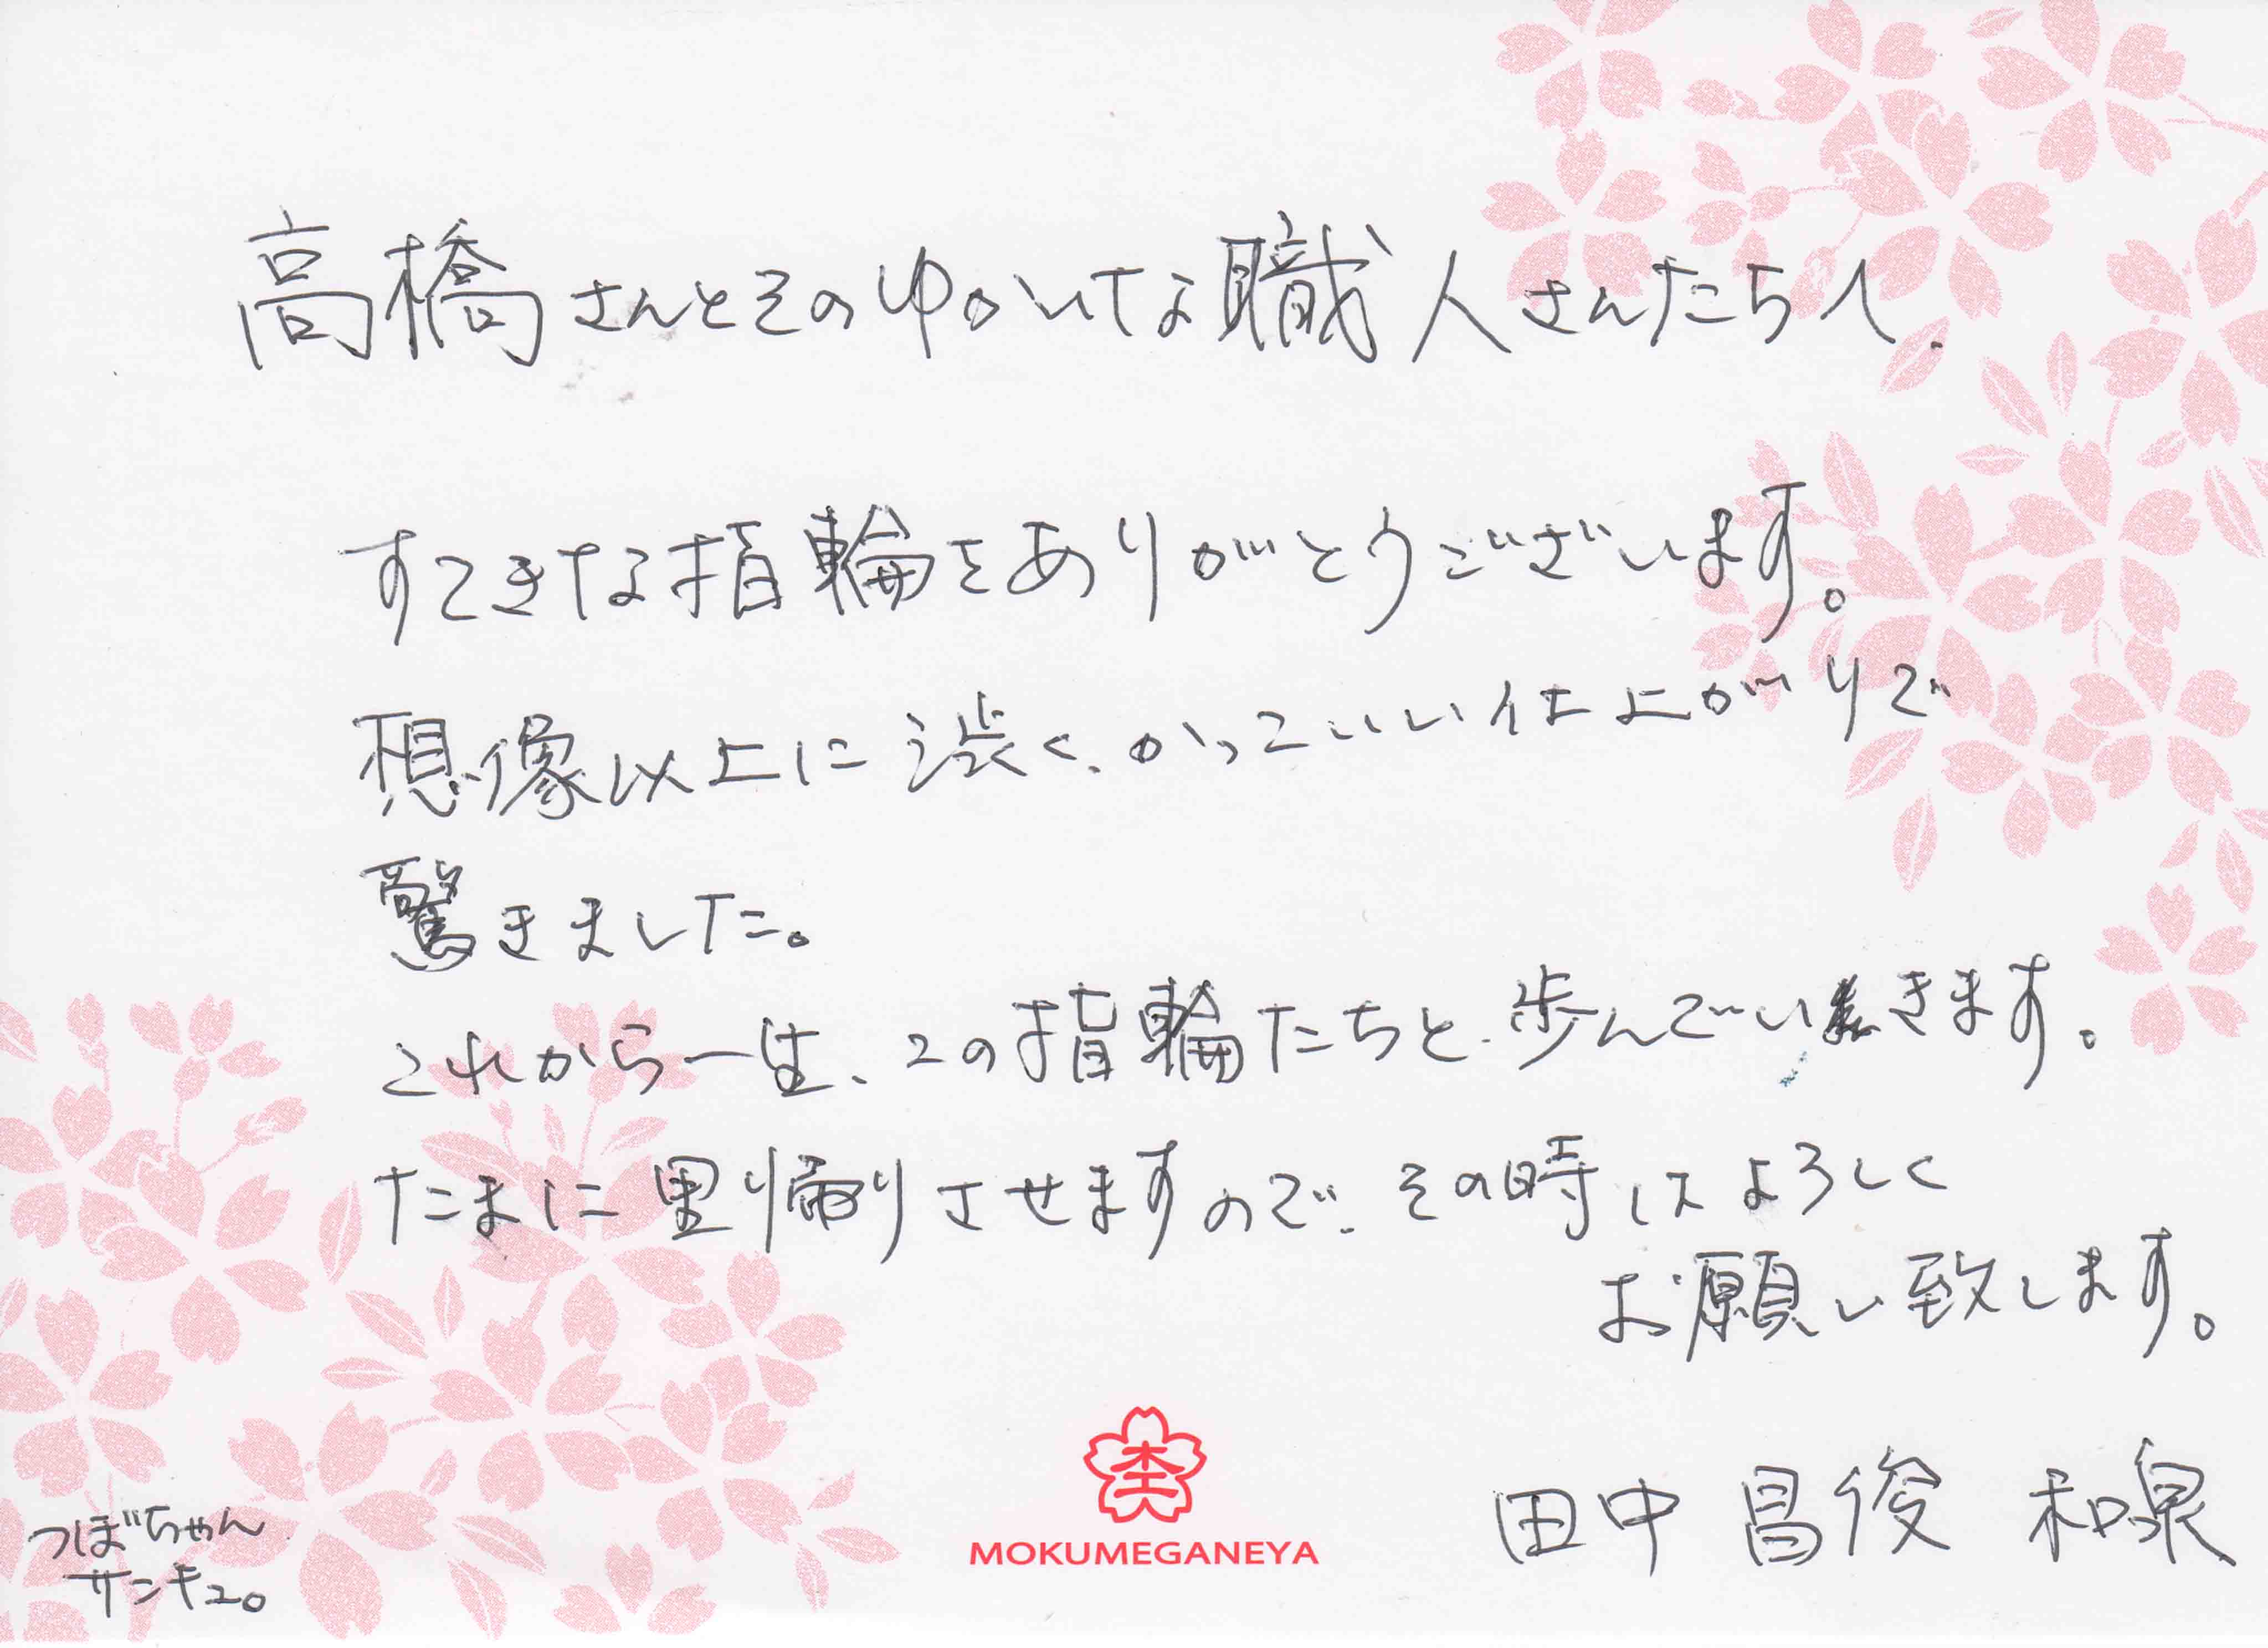 高橋さんとそのゆかいな職人さんたちへ.
すてきな指輪をありがとうございます。
想像以上に渋く、かっこいい仕上がりで
驚きました。
これから一生、この指輪たちと、歩んでいきます。
たまに里帰りさせますので、その時はよろしく
お願い致します。
田中 昌俊 和泉
つぼちゃん
サンキュ。
杢
MOKUMEGANEYA